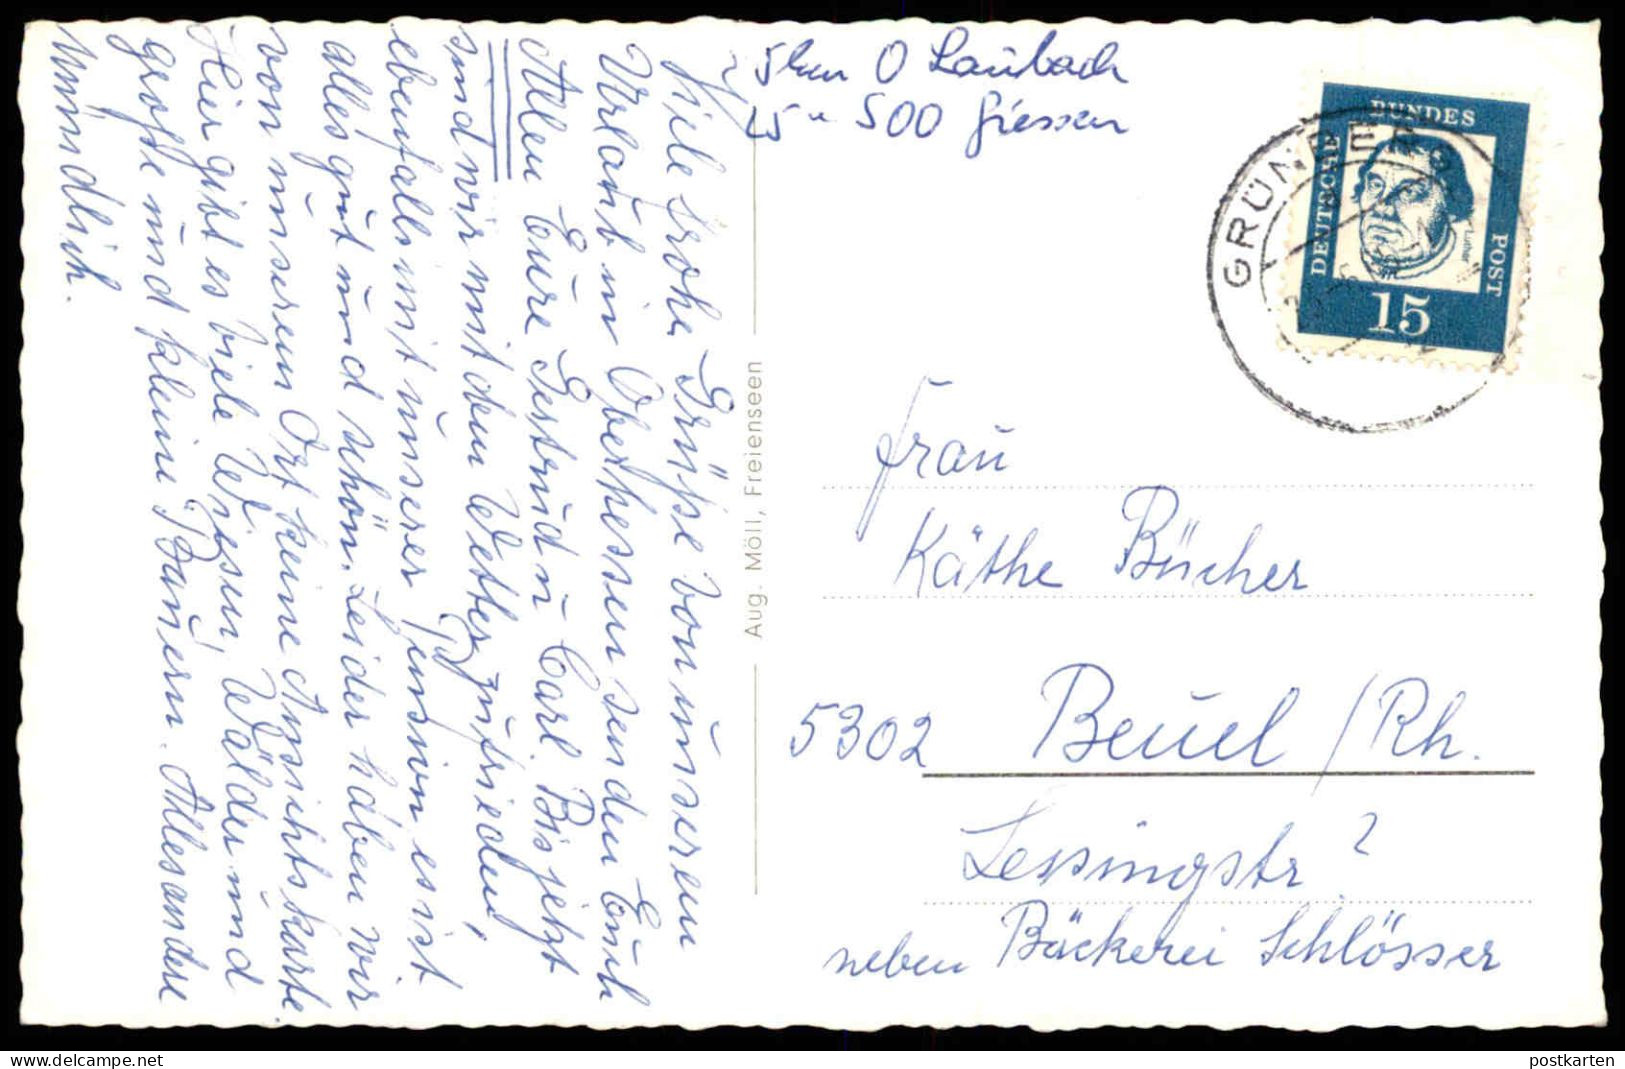 5 km O Laubach
25 " SOO Giessen
Viele frohe Grüße von unserem
Urlaub in Oberhessen senden Euch
Allen Eure Gertrud u Carl. Bis jetzt
sind wir mit dem Wetter zufrieden,
ebenfalls mit unserer Pension es ist
alles gut und schön. Leider haben wir
von unserem Ort keine Ansichtskarte.
Hier gibt es viele Wiesen, Wälder und
große und kleine Bauern. Alles andere
mündlich.
Aug. Möll, Freienseen
GRÜNBERG
DEUTSCHE
BUNDES
POST
Luther
15
Frau
Käthe Bücher
5302 Beuel /Rh.
Lessingstr ?
neben Bäckerei Schlösser
postkarten